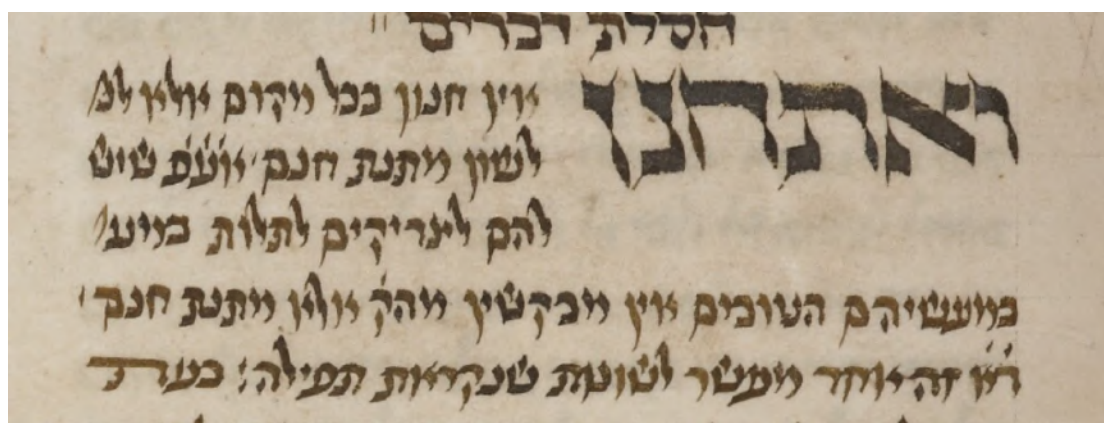 חסלת דברים
ואתחנן
אין חנון בכל מקום אלא לנ׳
לשון מתנת חנם׳ אע״פ שיש
להם לצדיקים לתלות במע׳
במעשיהם הטובים אין מבקשין מהק׳ אלא מתנת חנם׳
ד״א זה אחד מעשר לשונות שנקראות תפילה׃